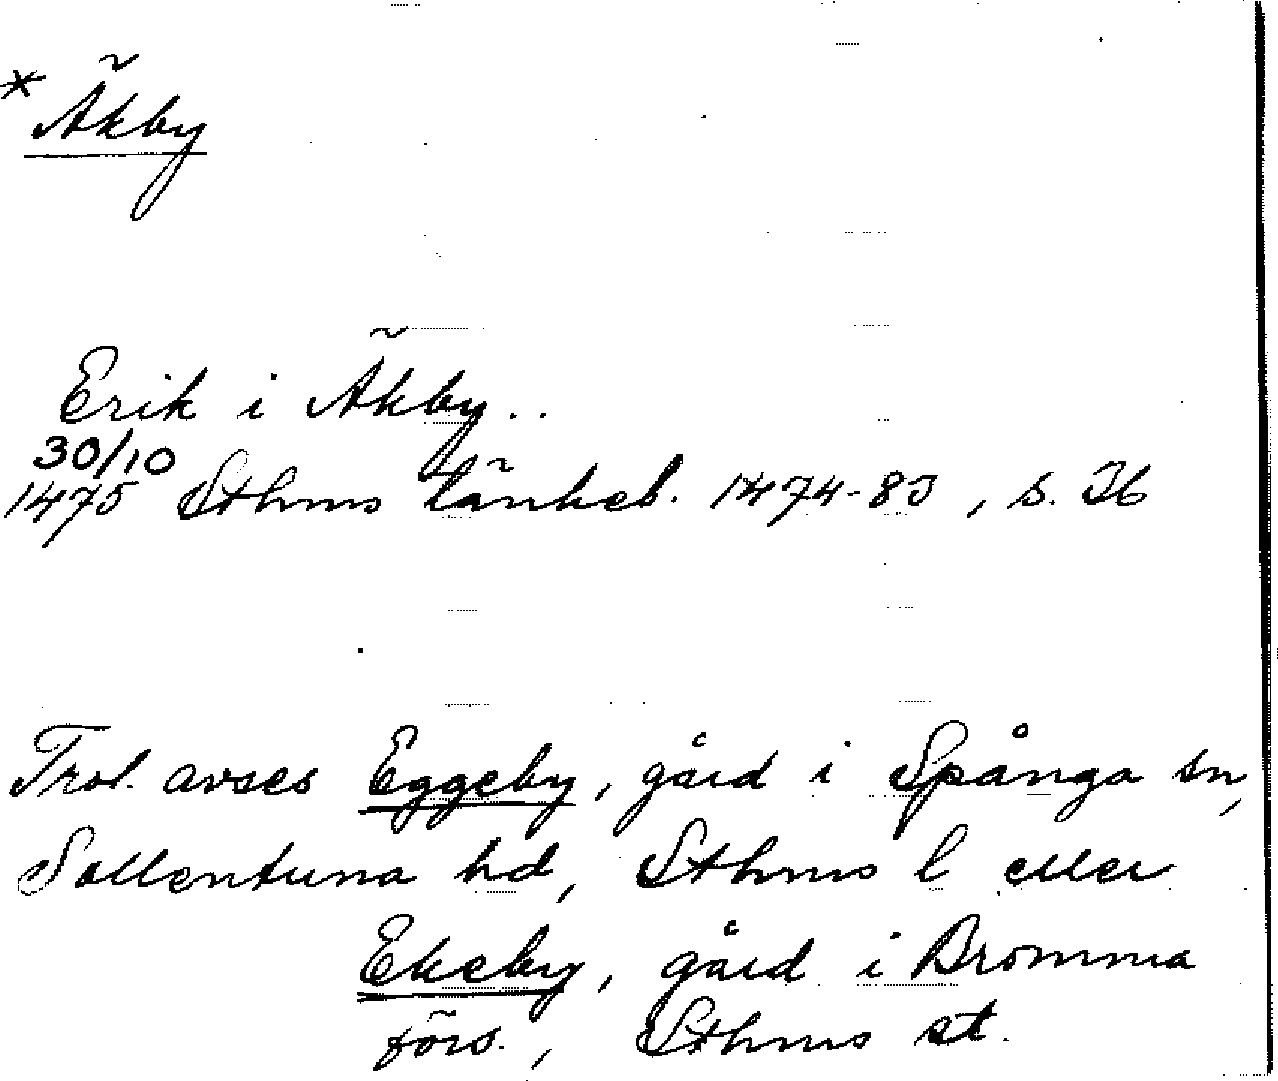 * Äkby
Erik i Äkby..
30/10
1475 Sthms tänkeb. 1474-83, s. 36
Trol. avses Eggeby, gård i Spånga sn,
Sollentuna hd, Sthms l eller
Ekeby, gård i Bromma
förs., Sthms st.